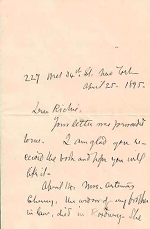 227 West 34th St. New York
April 25 - 1895.
Dear Richie.
Your letter was forwarded
to me. I am glad you re-
ceived the book and hope you will
like it.
April 14. Mrs. Artemas
Cheney, the widow of my brother
in law, died in Roxbury. She